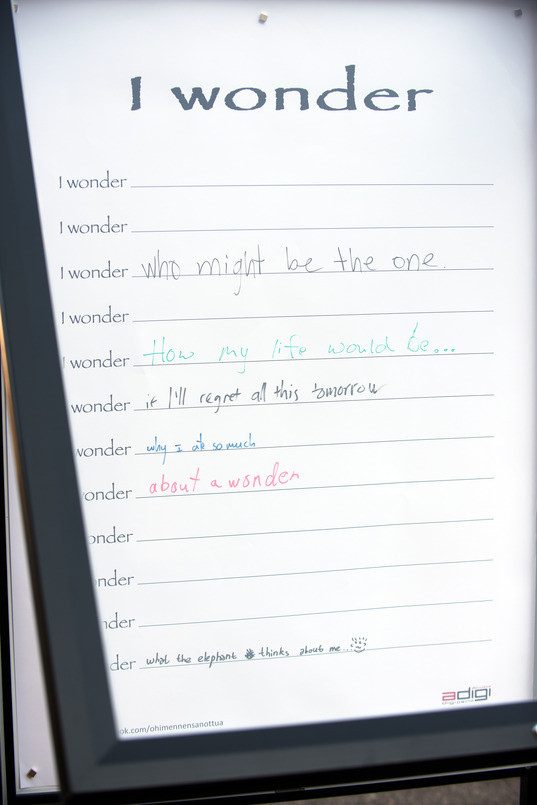 I wonder
I wonder
I wonder
I wonder who might be the one.
I wonder
I wonder How my life would be...
wonder if I'll regret all this tomorrow
wonder why I ate so much
onder about a wonder
onder
nder
nder
der what the elephant thinks about me...
adigi
ok.com/ohimennensanottua